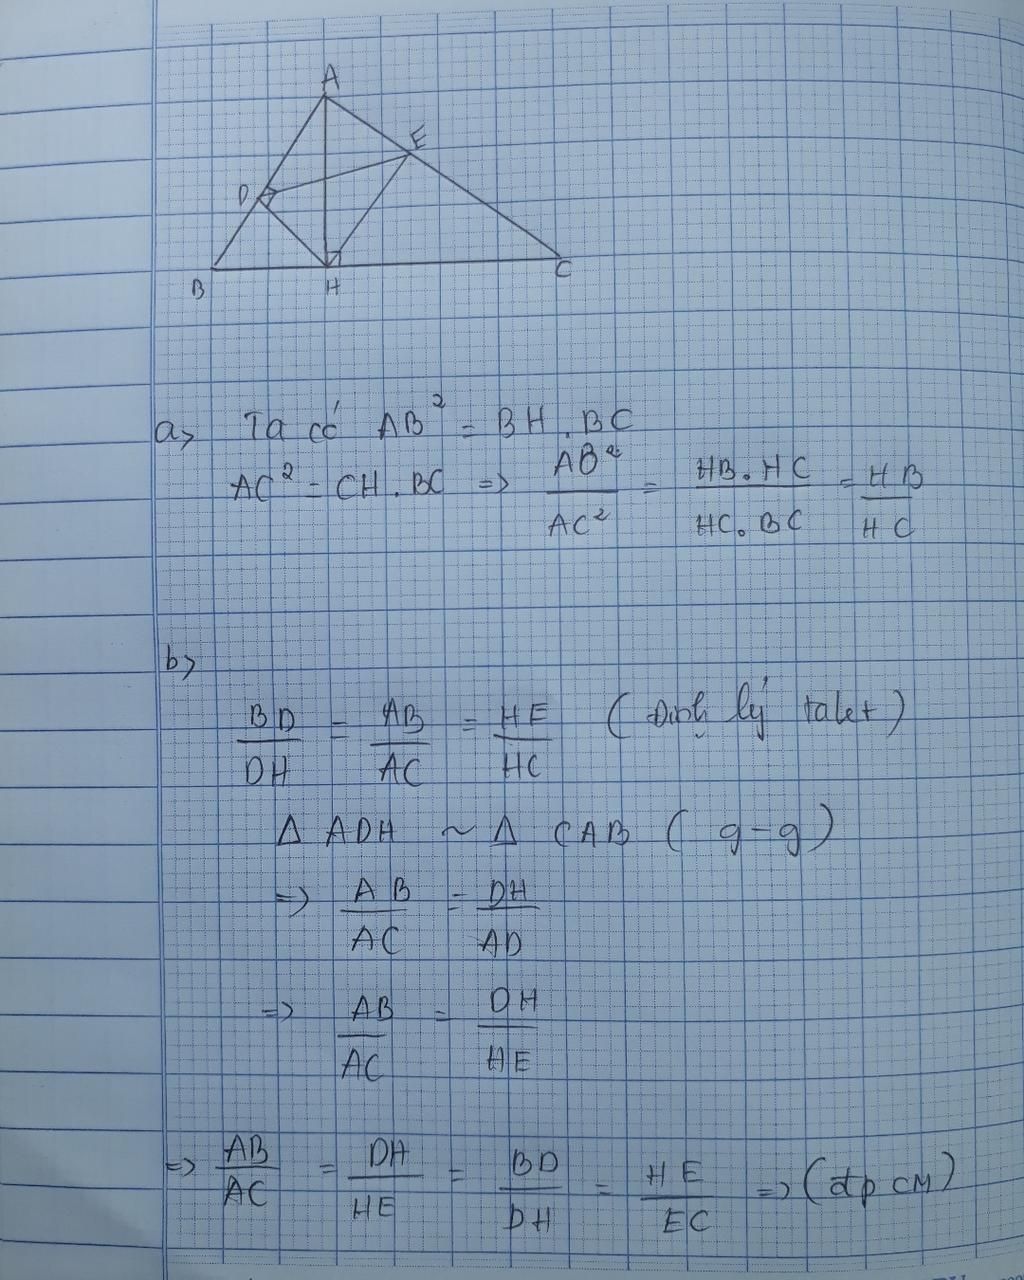 A
E
D
B
H
C
a> Ta có AB² = BH . BC
AC² = CH . BC => AB²/AC² = HB.HC/HC.BC = HB/HC
b>
BD/DH = AB/AC = HE/HC (Định lý talet)
Δ ADH ~ Δ CAB (g-g)
=> AB/AC = DH/AD
=> AB/AC = DH/HE
=> AB/AC = DH/HE = BD/DH = HE/EC => (đpcm)